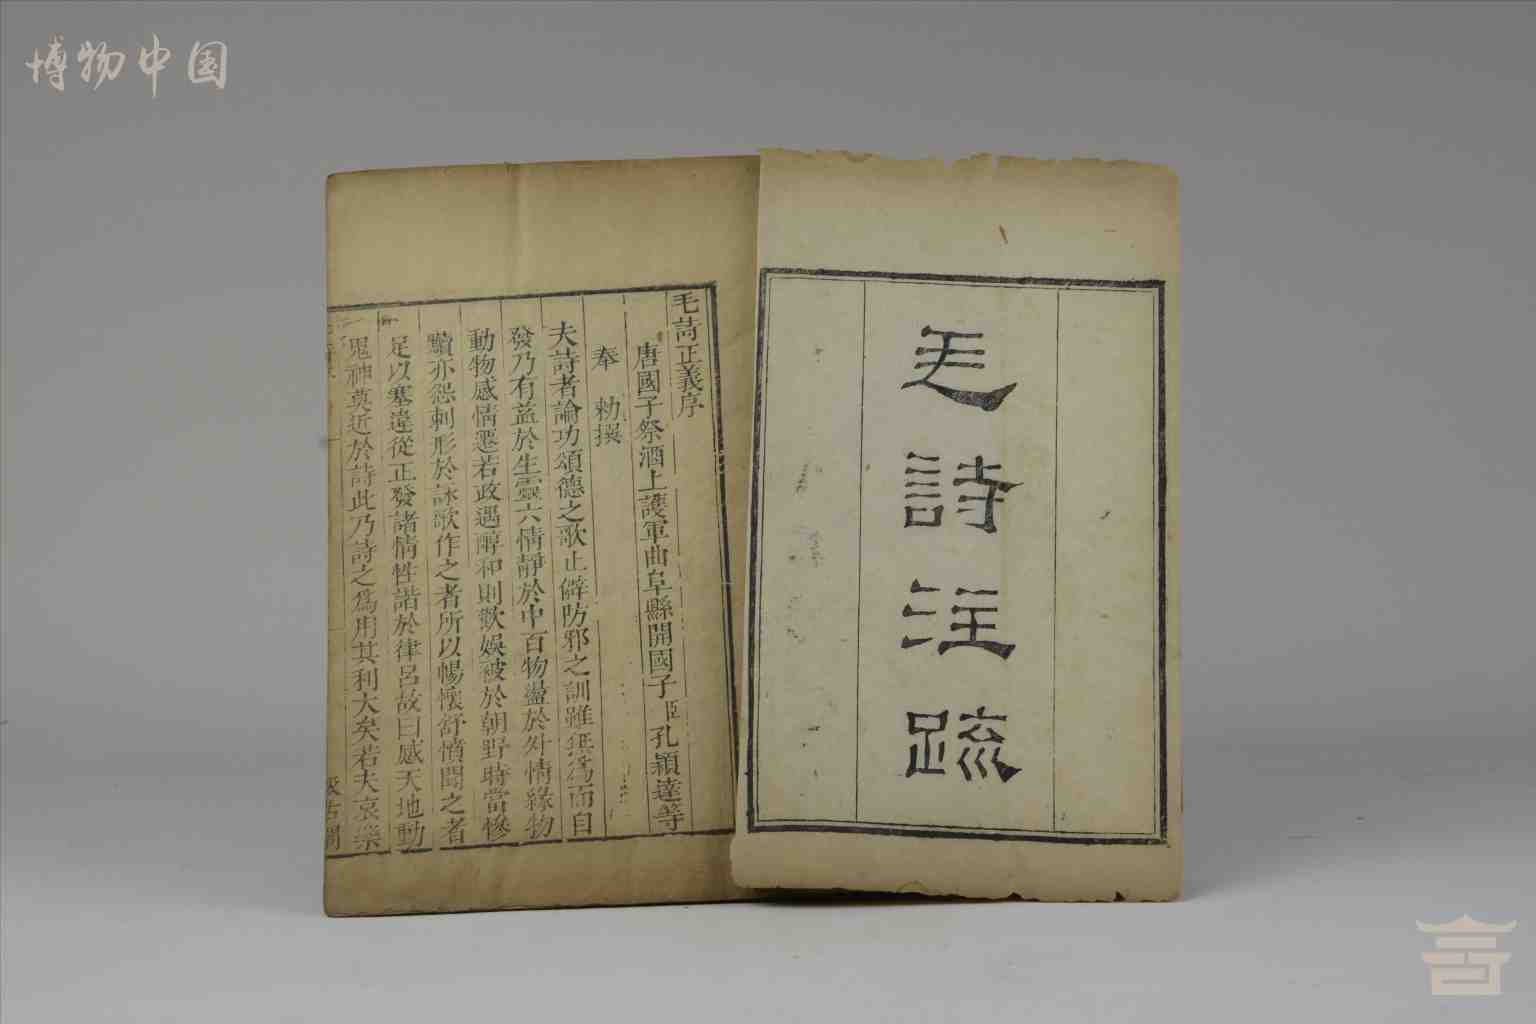 博物中国
毛詩注疏
毛詩正義序
唐國子祭酒上護軍曲阜縣開國子臣孔穎達等
奉 勅撰
夫詩者論功頌德之歌止僻防邪之訓雖無為而自
發乃有益於生靈六情靜於中百物盪於外情緣物
動物感情遷若政遇醇和則歡娛被於朝野時當慘
黷亦怨刺形於詠歌作之者所以暢懷舒憤聞之者
足以塞違從正發諸情性諧於律呂故曰感天地動
鬼神莫近於詩此乃詩之為用其利大矣若夫哀樂
汲古閣